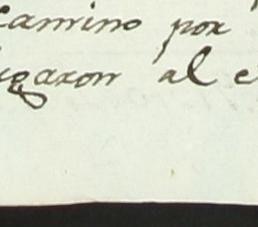 Camino por
igaron al e